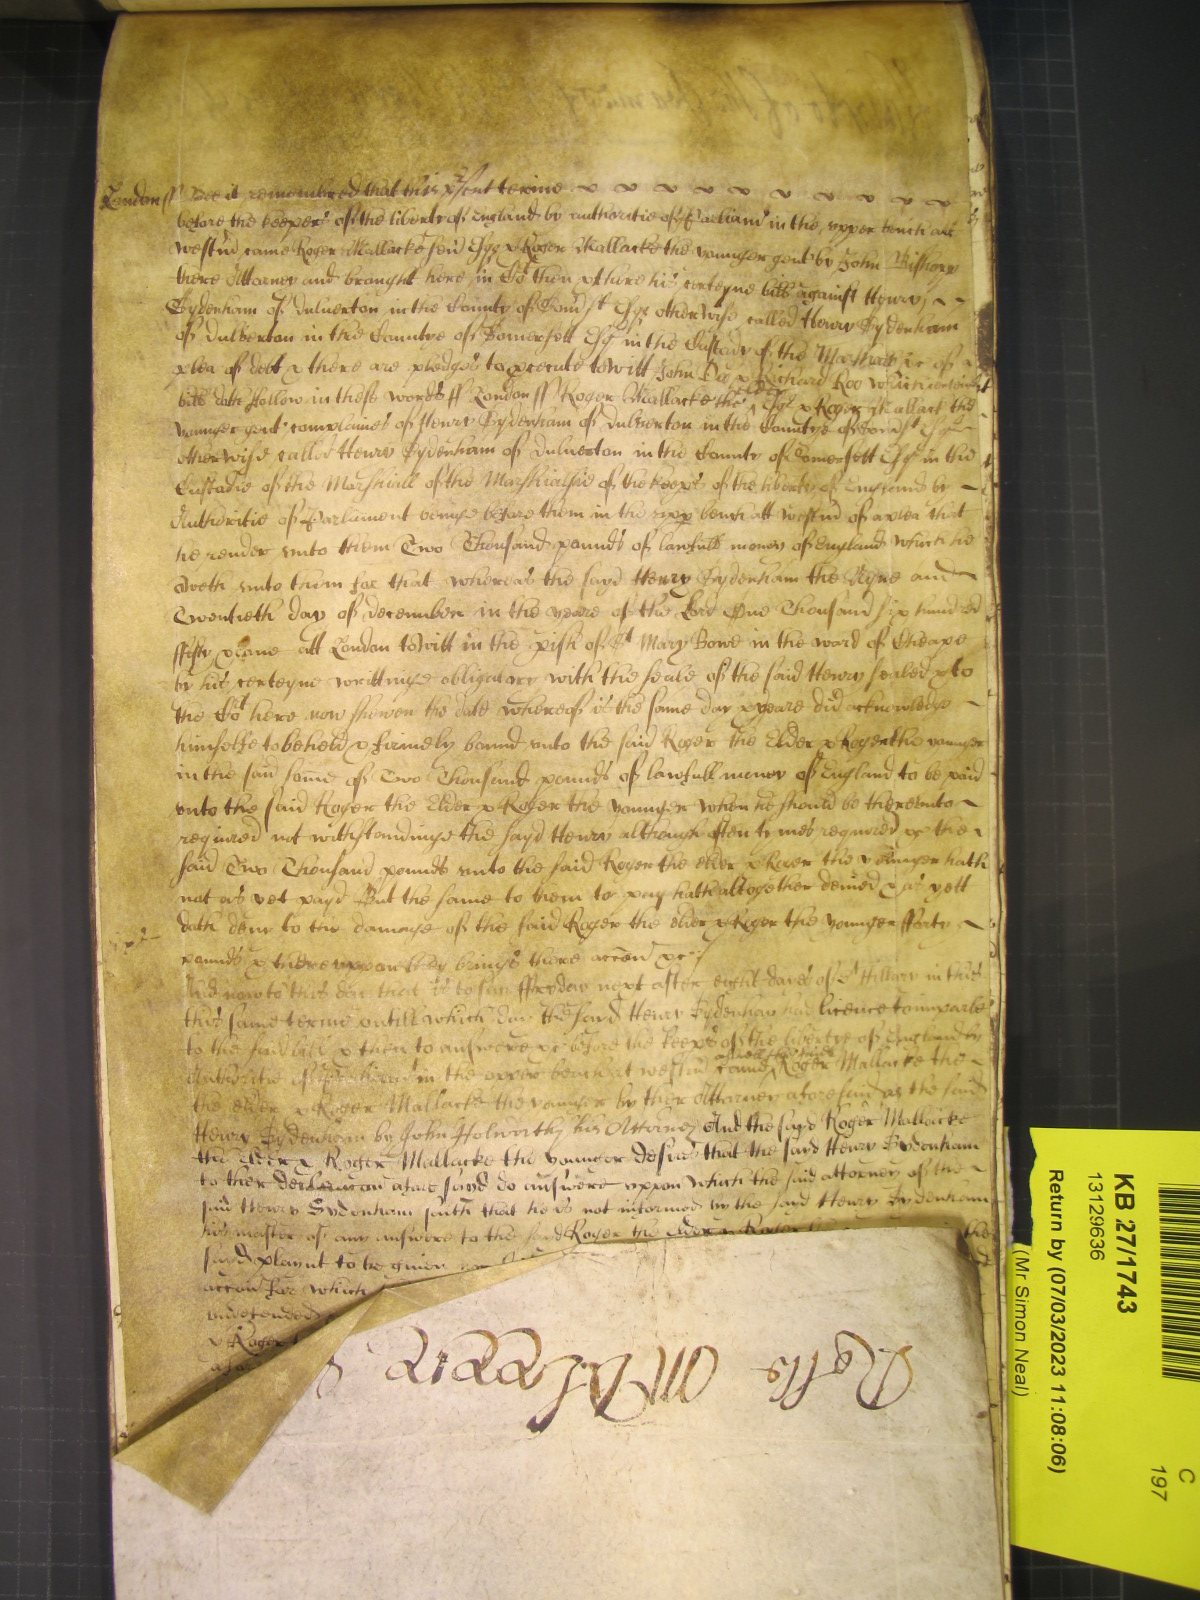 London ss Bee it remembred that this p'sent terme
before the keepers of the liberty of England by authoritie of Parliamt in the upper bench att
westm̃ came Roger Mallacke senr Esqr & Roger Mallacke the younger gent by John Bishopp
there Attorney and brought here in Cort then & there his certeyne bill against Henry
Sydenham of Dulverton in the County of Somst Esqr otherwise called Henry Sydenham
of Dulverton in the Countye of Somersett Esqr in the Custody of the Marshall &c of a
plea of debt & there are pledges to prosecute to witt John Doe & Richard Roo which certeine
bill doth follow in these words ss London ss Roger Mallacke the elder Esqr & Roger Mallack the
younger gent complaines of Henry Sydenham of Dulverton in the Countye of Somst Esqr
otherwise called Henry Sydenham of Dulverton in the County of Somersett Esqr in the
Custodie of the Marshall of the Marshalsie of the keeps of the liberty of England by
Authoritie of Parliament beinge before them in the upp bench att westm̃ of a plea that
he render unto them Two Thousand pounds of lawfull money of England which he
oweth unto them for that whereas the sayd Henry Sydenham the Nyne and
Twentieth day of december in the yeare of the Lord One Thousand six hundred
ffifty & one att London to witt in the pish of St Mary Bowe in the ward of Cheape
by his certeyne writtinge obligatory with the seale of the said Henry sealed & to
the Cort here now showen the date whereof is the same day & yeare did acknowledge
himselfe to be held & firmely bound unto the said Roger the Elder & Roger the younger
in the said some of Two Thousand pounds of lawfull money of England to be paid
unto the said Roger the Elder & Roger the younger when he should be thereunto
required not withstandinge the sayd Henry although often tymes required &c the
said Two Thousand pounds unto the said Roger the elder & Roger the younger hath
not as yet payd But the same to them to pay hath altogether denied & as yett
doth deny to the damage of the said Roger the elder & Roger the younger fforty
pounds & thereuppon they bringe there accon &c
And now to this day that is to say ffryday next after eight dayes of St Hillary in this
this same terme untill which day the said Henry Sydenham had licence to imparle
to the said bill & then to answere &c before the keeps of the liberty of England by
Authoritie of Parliamt in the upper bench at westm̃ came aswell the said Roger Mallacke the
the elder & Roger Mallacke the younger by ther Attorney aforesaid as the said
Henry Sydenham by John Holworthy his Attorney And the sayd Roger Mallacke
the Elder & Roger Mallacke the younger desire that the sayd Henry Sydenham
to ther declaracon afore sayd do answere uppon which the said attorney of the
said Henry Sydenham saith that he is not informed by the said Henry Sydenham
his master of any answere to the said Roger the Elder & Roger the
sayd playnt to be given
accon for which
undefended
& Roger
Rolls
KB 27/1743
13129636
Return by (07/03/2023 11:08:06)
(Mr Simon Neal)
C
197